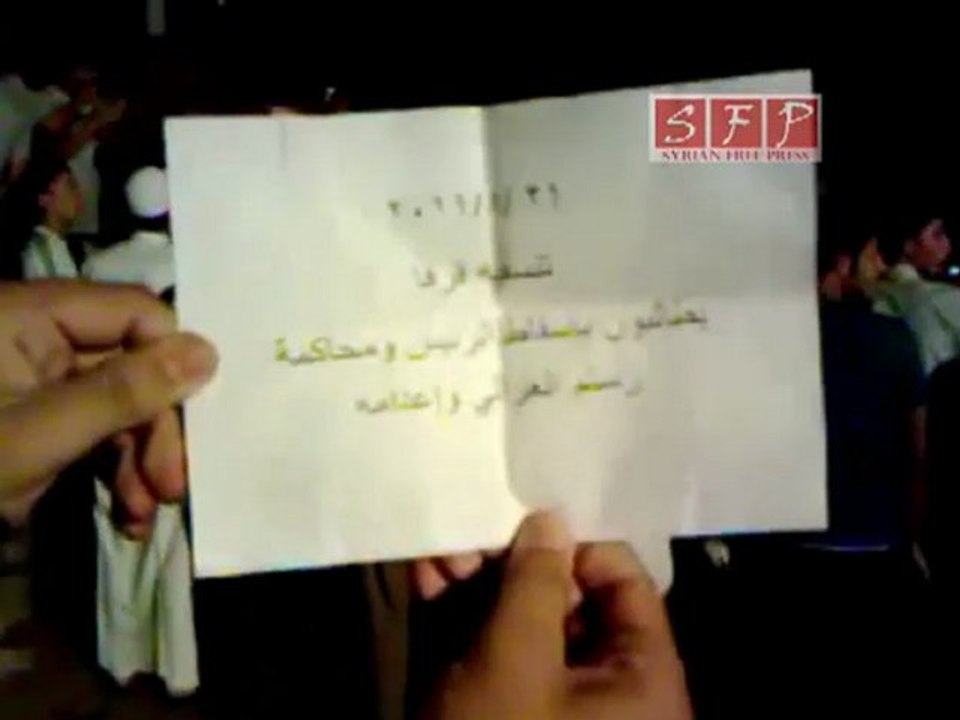 SFP
SYRIAN FREE PRESS
قرفا
يطالبون بإسقاط الرئيس ومحاكمة
رستم الغزالي وإعدامه